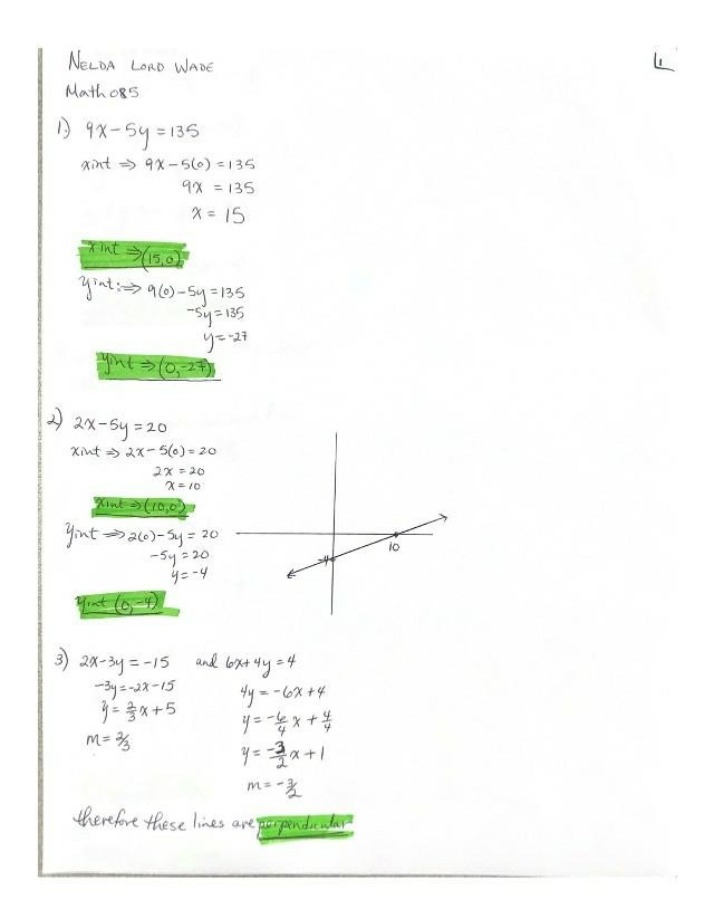 NELDA LORD WADE
Math 085
1.) 9x-5y=135
xint ⇒ 9x-5(0)=135
9x = 135
x = 15
x int ⇒(15,0)
yint:⇒ 9(0)-5y=135
-5y=135
y=-27
yint ⇒(0,-27)
2) 2x-5y=20
xint ⇒ 2x-5(0)=20
2x=20
x=10
xint ⇒(10,0)
yint ⇒2(0)-5y=20
-5y=20
y=-4
yint (0,-4)
-4
10
3) 2x-3y=-15 and 6x+4y=4
-3y=-2x-15
y=2/3x+5
m=2/3
4y=-6x+4
y=-6/4x+4/4
y=-3/2x+1
m=-3/2
therefore these lines are perpendicular